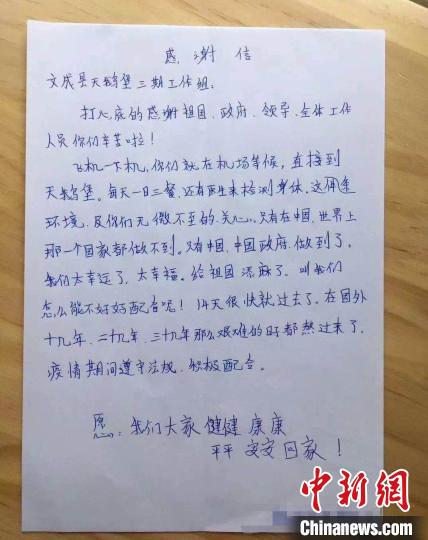 感谢信
文成县天鹅堡三期工作组：
打心底的感谢祖国、政府、领导、全体工作
人员你们辛苦啦！
飞机一下机，你们就在机场等候，直接到
天鹅堡。每天一日三餐，还有医生来检测身体，这里
环境，及你们无微不至的关心，只有在中国，世界上
那一个国家都做不到。只有中国，中国政府做到了。
我们太幸运了，太幸福。给祖国添麻了，叫我们
怎么能不好好配合呢！14天很快就过去了，在国外
十九年、二十九年、三十九年那么艰难的时都熬过来了，
疫情期间遵守法规、积极配合。
愿：我们大家健健康康
平平安安回家！
中新网
Chinanews.com